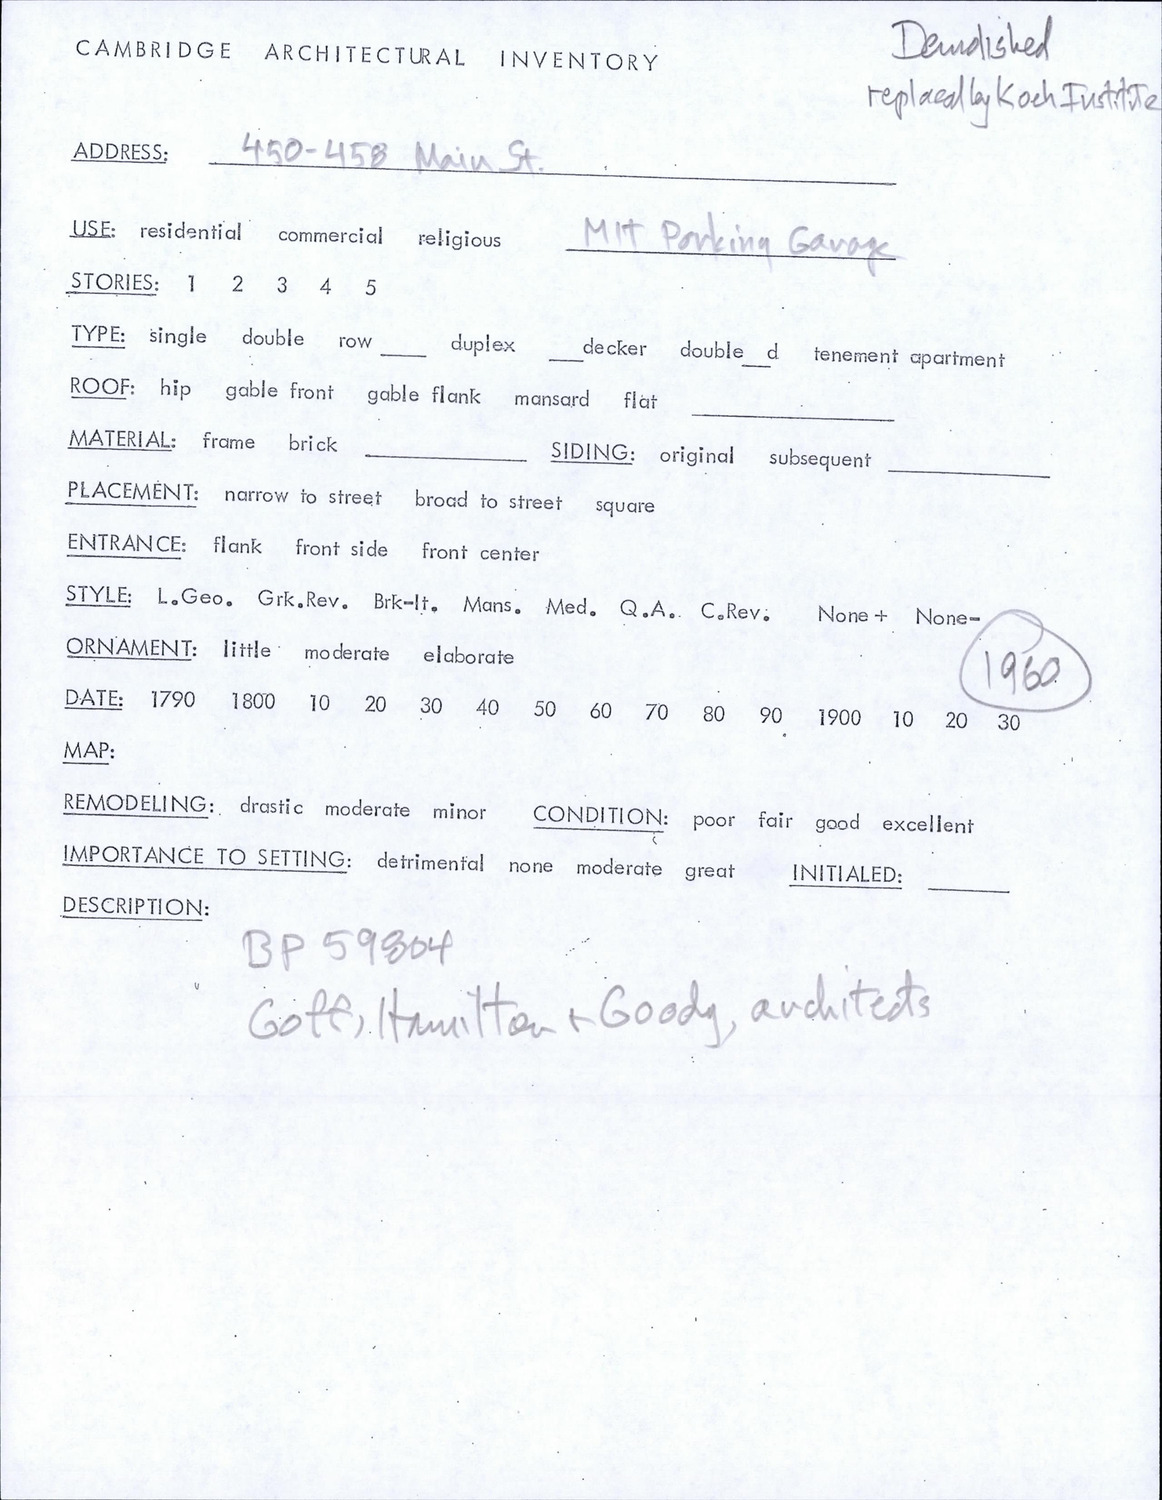 CAMBRIDGE ARCHITECTURAL INVENTORY
Demolished
replaced by Koch Institute
ADDRESS: 450-458 Main St.
USE: residential commercial religious MIT Parking Garage
STORIES: 1 2 3 4 5
TYPE: single double row ____ duplex ___decker double__d tenement apartment
ROOF: hip gable front gable flank mansard flat ____
MATERIAL: frame brick ____ SIDING: original subsequent ____
PLACEMENT: narrow to street broad to street square
ENTRANCE: flank front side front center
STYLE: L.Geo. Grk.Rev. Brk-It. Mans. Med. Q.A. C.Rev. None+ None-
ORNAMENT: little moderate elaborate
1960
DATE: 1790 1800 10 20 30 40 50 60 70 80 90 1900 10 20 30
MAP:
REMODELING: drastic moderate minor CONDITION: poor fair good excellent
IMPORTANCE TO SETTING: detrimental none moderate great INITIALED: ____
DESCRIPTION:
BP 59804
Goff, Hamilton + Goody, architects